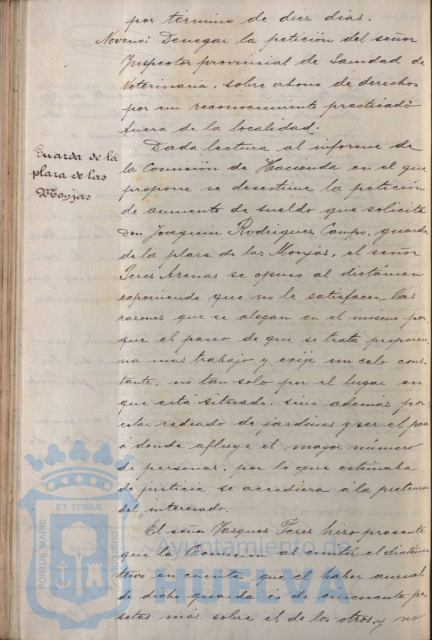 por término de diez días.
Noveno: Denegar la petición del señor
Inspector provincial de Sanidad de
Veterinaria, sobre abono de derechos
por un reconocimiento practicado
fuera de la localidad.
Guarda de la
plaza de las
Monjas
Dada lectura al informe de
la Comisión de Hacienda en el que
propone se desestime la petición
de aumento de sueldo que solicita
Don Joaquín Rodríguez Campo, guarda
de la plaza de las Monjas, el señor
Peres Arenas se opuso al dictamen
exponiendo que no le satisfacen las
razones que se alegan en el mismo por
que el paseo de que se trata proporcio
na mas trabajo y exije un celo cons-
tante, no tan solo por el lugar en
que está situado, sinó además por
estar rodeado de jardines y ser el
á donde afluye el mayor número
de personas, por lo que estimaba
de justicia se accediera á la pretension
del interesado.
El señor Vasques Peres hizo presente
que la Comisión al emitir el dictamen
tuvo en cuenta que el haber anual
de dicho guarda es de cincuenta pe-
setas más sobre el de los otros, y no
ET TERRÆ
PORTUS MARIS
CUSTODIA
Ayuntamiento de
HUELVA